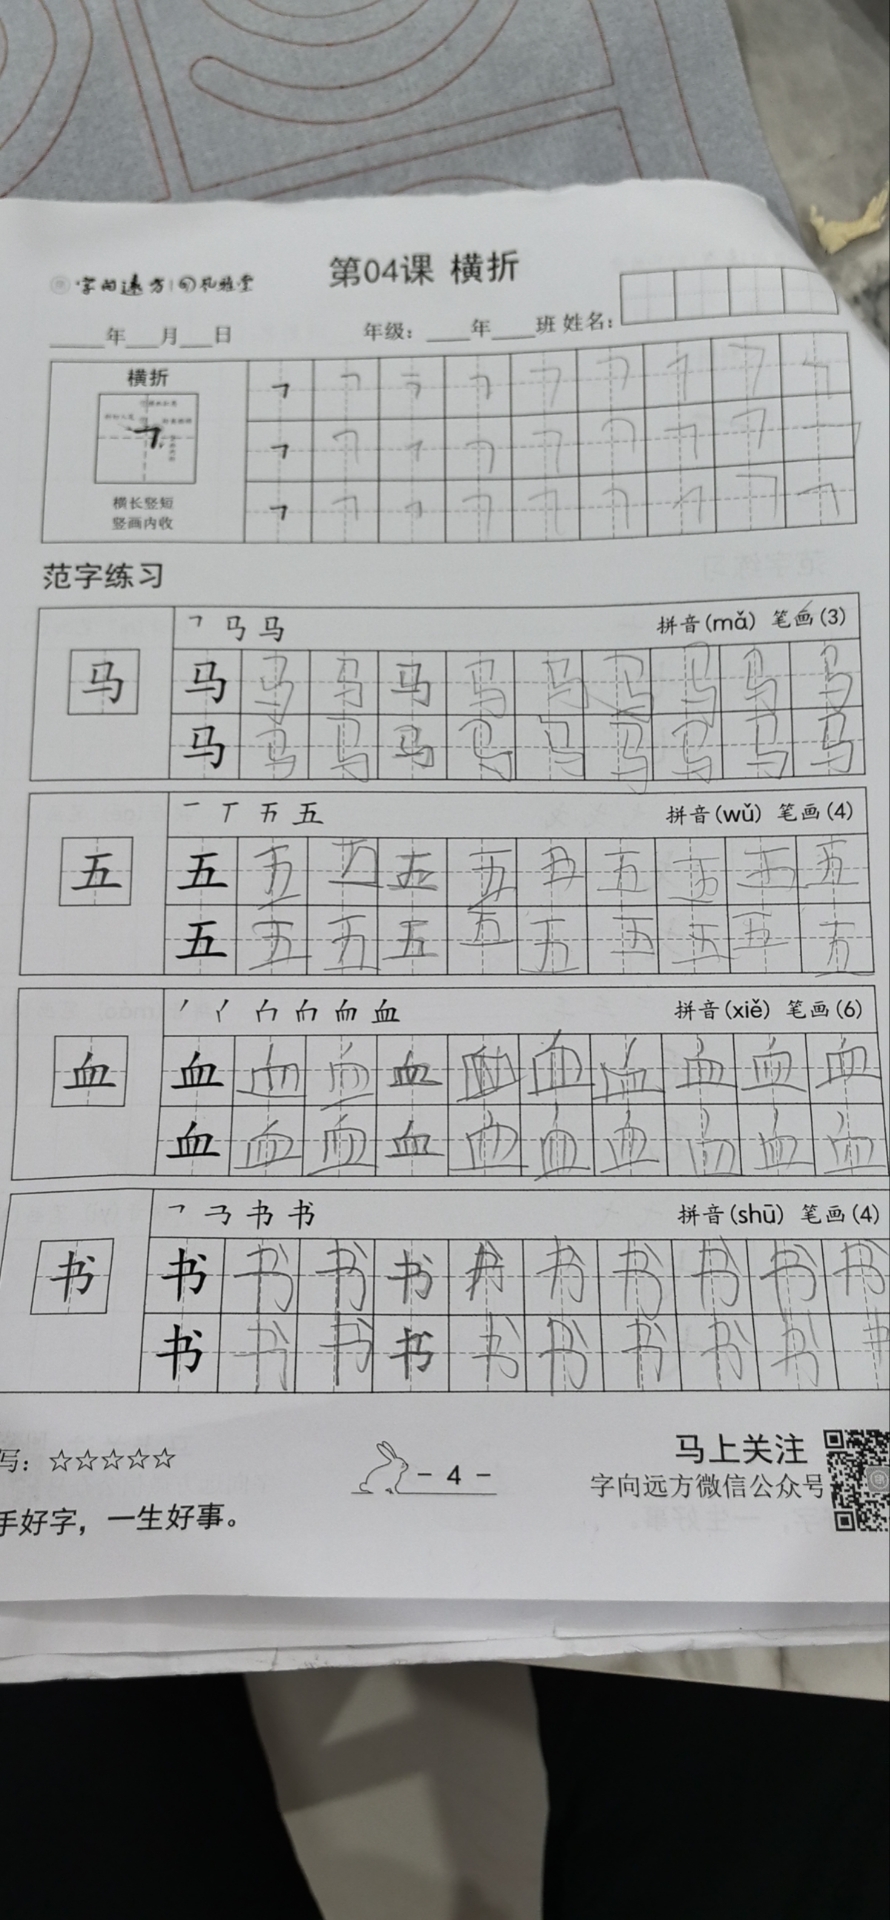 第04课 横折
年 月 日 年级： 年 班 姓名：
横折
横长竖短
竖画内收
范字练习
㇕ 马 马 拼音(mǎ) 笔画(3)
马 马 马 马 马 马 马 马 马 马 马
马 马 马 马 马 马 马 马 马 马
一 丅 五 五 拼音(wǔ) 笔画(4)
五 五 五 五 五 五 五 五 五 五 五
五 五 五 五 五 五 五 五 五 五
血 拼音(xiě) 笔画(6)
血 血 血 血 血 血 血 血 血 血 血
血 血 血 血 血 血 血 血 血 血
㇕ 书 书 拼音(shū) 笔画(4)
书 书 书 书 书 书 书 书 书 书 书
书 书 书 书 书 书 书 书 书 书
写：☆☆☆☆☆
手好字，一生好事。
- 4 -
马上关注
字向远方微信公众号